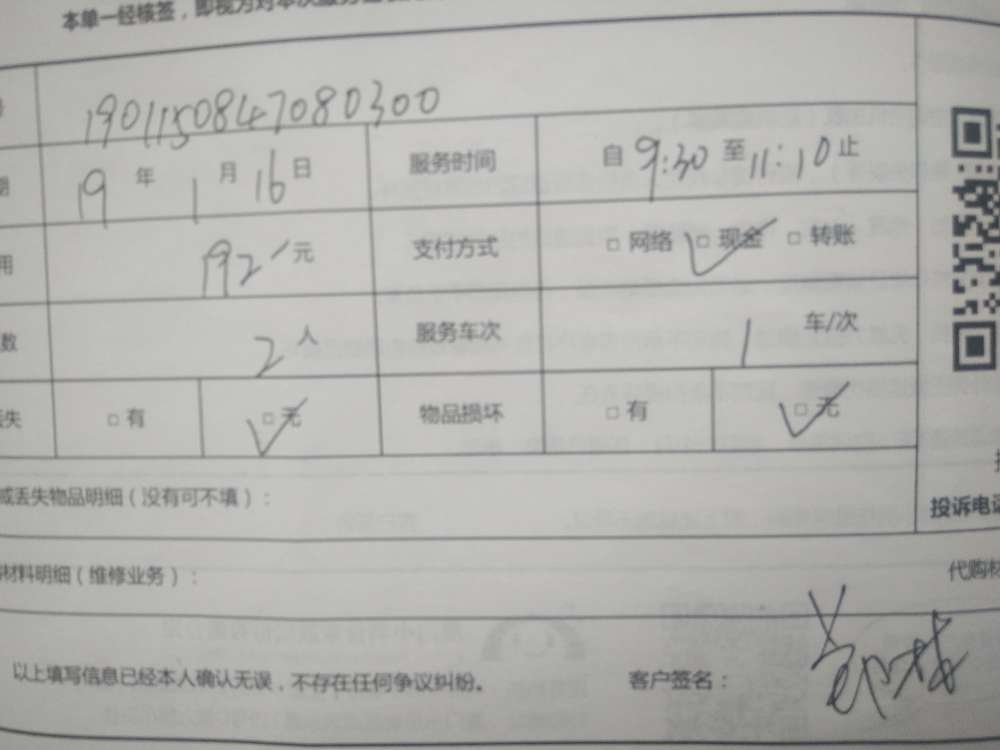 本单一经核签，即视为对本次服务
1901150847080300
期 19 年 1 月 16 日 服务时间 自 9:30 至 11:10 止
用 192 元 支付方式 □ 网络 ☑ 现金 □ 转账
数 2 人 服务车次 1 车/次
丢失 □ 有 ☑ 无 物品损坏 □ 有 ☑ 无
或丢失物品明细（没有可不填）：
投诉电话
材料明细（维修业务）： 代购材
以上填写信息已经本人确认无误，不存在任何争议纠纷。 客户签名：